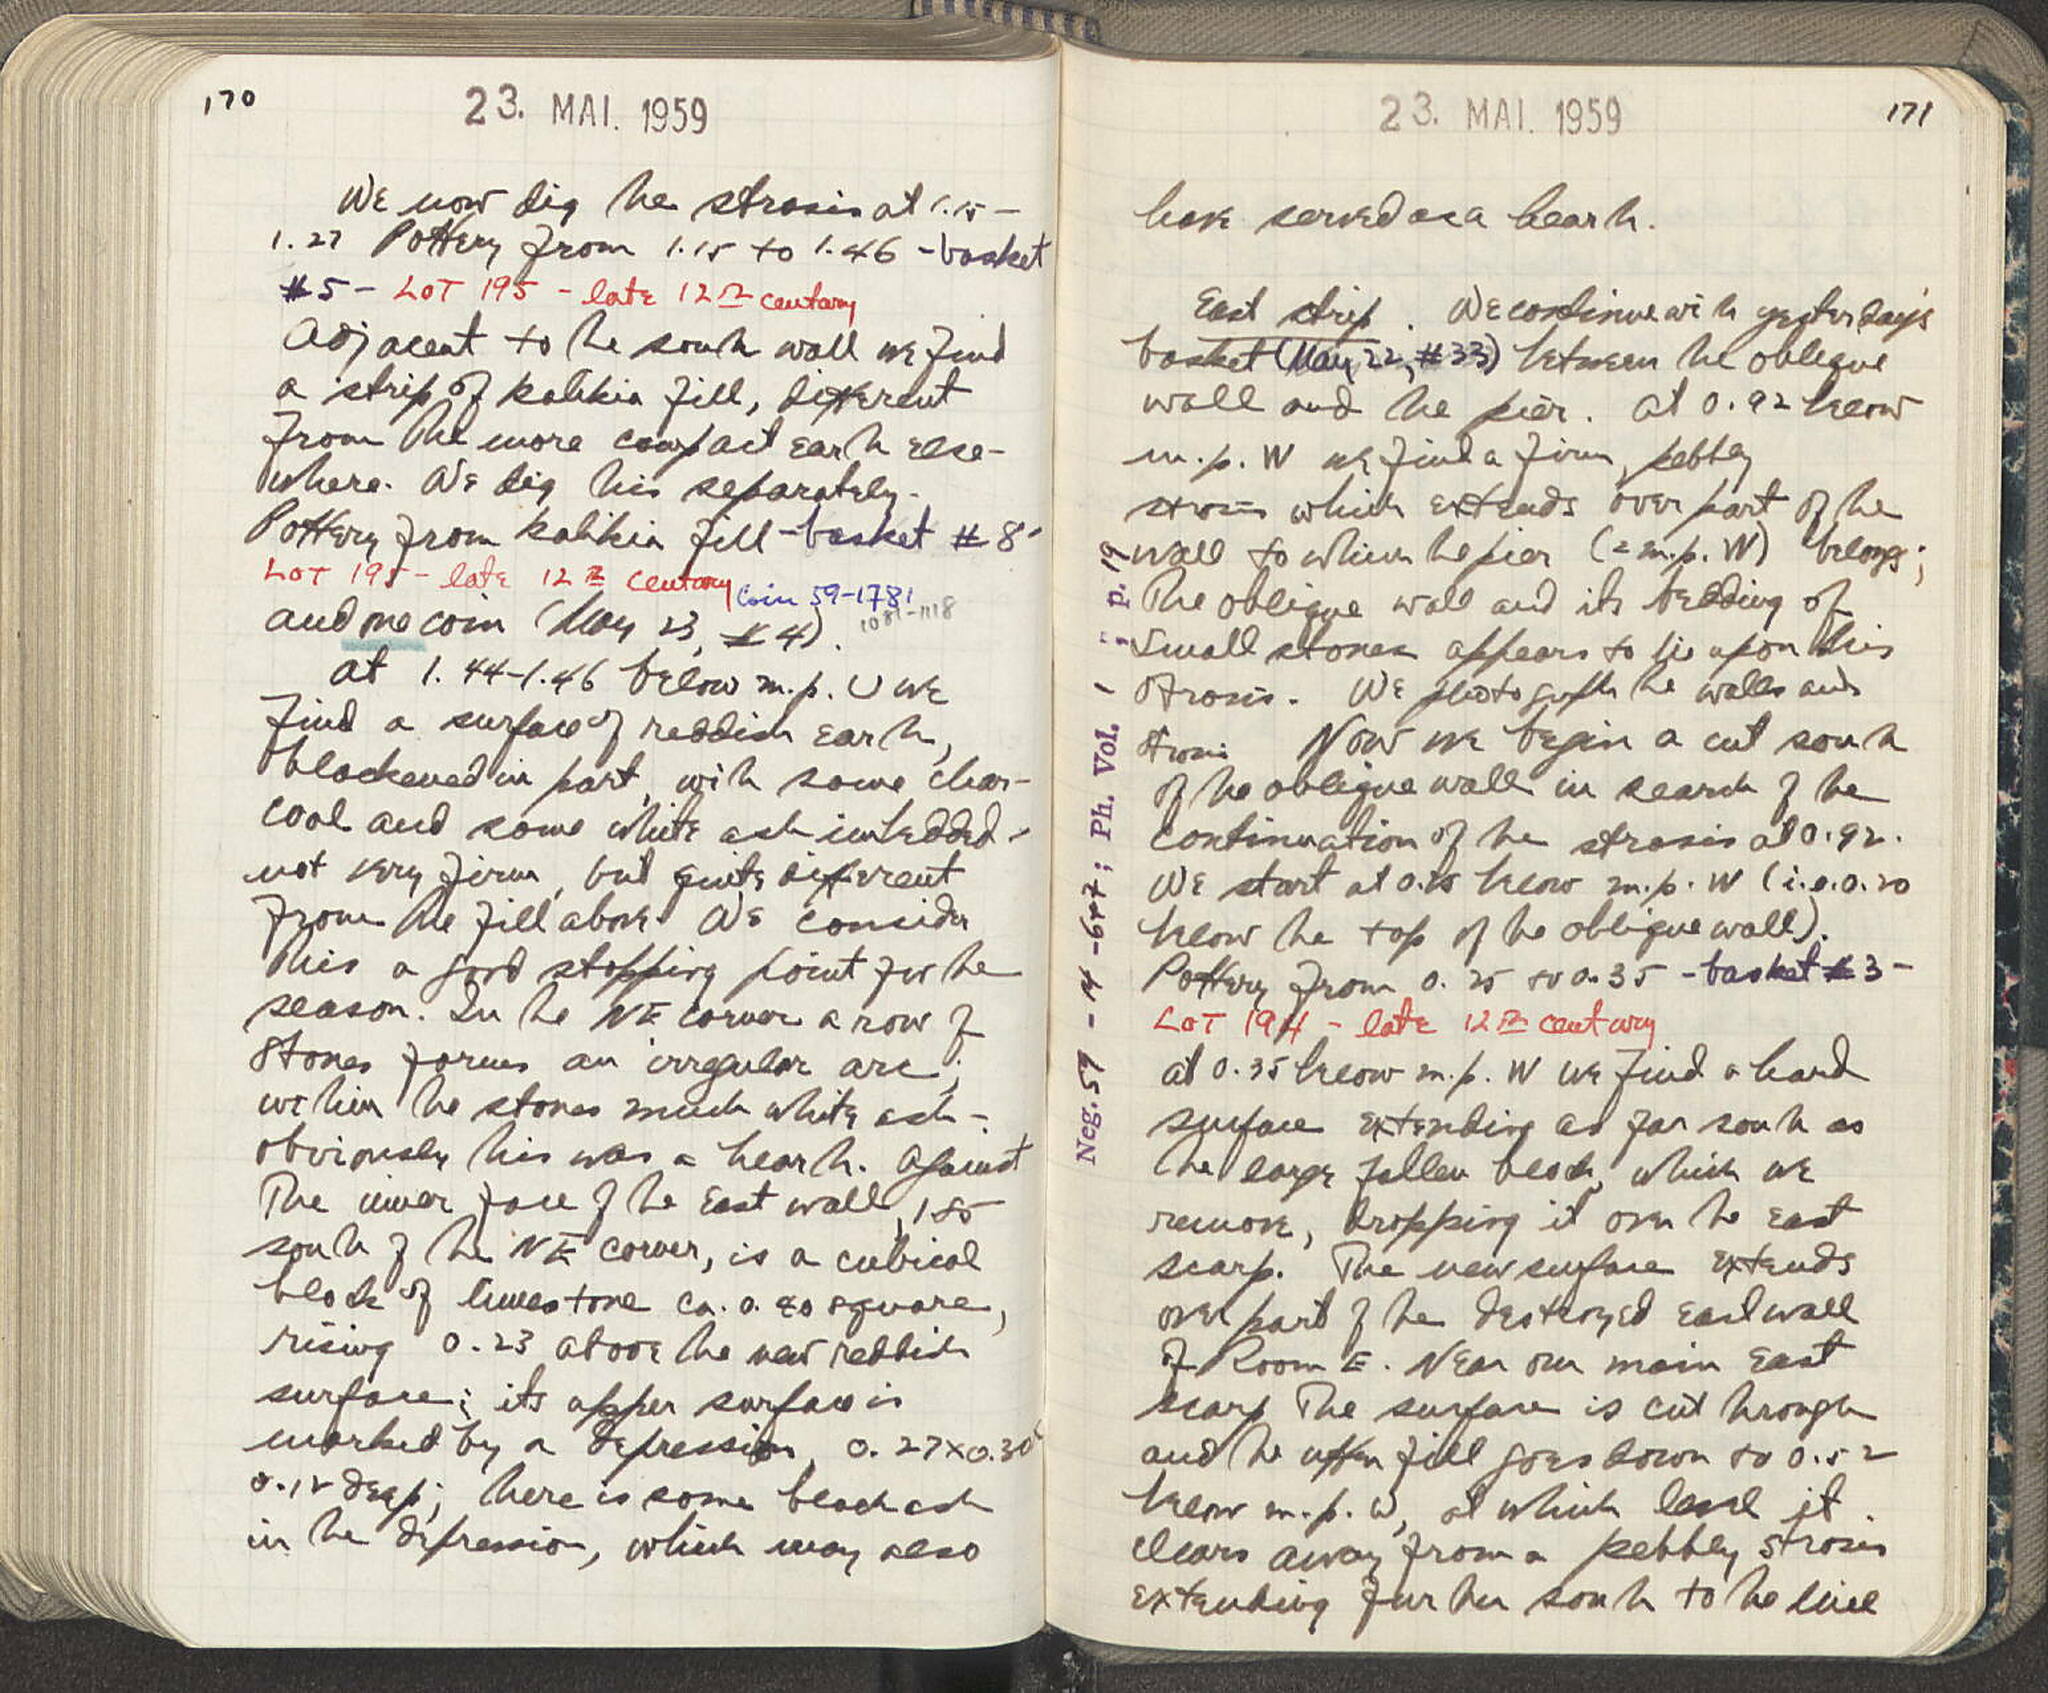 170
23. MAI. 1959
We now dig the strosis at 1.15 –
1.27 Pottery from 1.15 to 1.46 – basket
#5 – LOT 195 – late 12th century
Adjacent to the south wall we find
a strip of kalikia fill, different
from the more compact earth else-
where. We dig this separately.
Pottery from kalikia fill – basket #8
LOT 195 – late 12th century Coin 59-1781
1081-1118
and one coin (May 23, #4).
At 1.44-1.46 below m.p. U we
find a surface of reddish earth,
blackened in part, with some char-
coal and some white ash imbedded –
not very firm, but quite different
from the fill above. We consider
this a good stopping point for the
season. In the NE corner a row of
stones forms an irregular arc;
within the stones much white ash –
obviously this was a hearth. Against
the inner face of the East wall, 1.85
south of the NE corner, is a cubical
block of limestone ca. 0.80 square,
rising 0.23 above the new reddish
surface; its upper surface is
marked by a depression, 0.27 x 0.30
0.12 deep; there is some black ash
in the depression, which may also
23. MAI. 1959
171
have served as a hearth.
East strip. We continue with yesterday's
basket (May 22, #33) between the oblique
wall and the pier. At 0.92 below
m.p. W we find a firm, pebbly
strosis which extends over part of the
wall to which the pier (= m.p. W) belongs;
The oblique wall and its bedding of
small stones appears to lie upon this
strosis. We photograph the walls and
strosis Now we begin a cut south
of the oblique wall in search of the
continuation of the strosis at 0.92.
We start at 0.25 below m.p. W (i.e. 0.20
below the top of the oblique wall).
Pottery from 0.25 to 0.35 – basket #3 –
LOT 194 – late 12th century
At 0.35 below m.p. W we find a hard
surface extending as far south as
the large fallen block, which we
remove, dropping it over the East
scarp. The new surface extends
over part of the destroyed East wall
of Room E. Near our main East
scarp the surface is cut through
and the upper fill goes down to 0.52
below m.p. W, at which level it
clears away from a pebbly strosis
extending further south to the line
Neg. 59 - 14 - 6+7; Ph. Vol. 1 ; p. 19